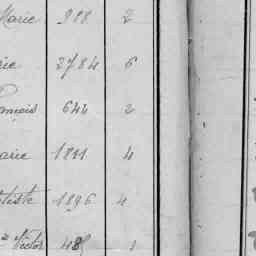 Marie 988 2
rie 2784 6
ançois 642 2
arie 1811 4
tiste 1896 4
Victor 48 1